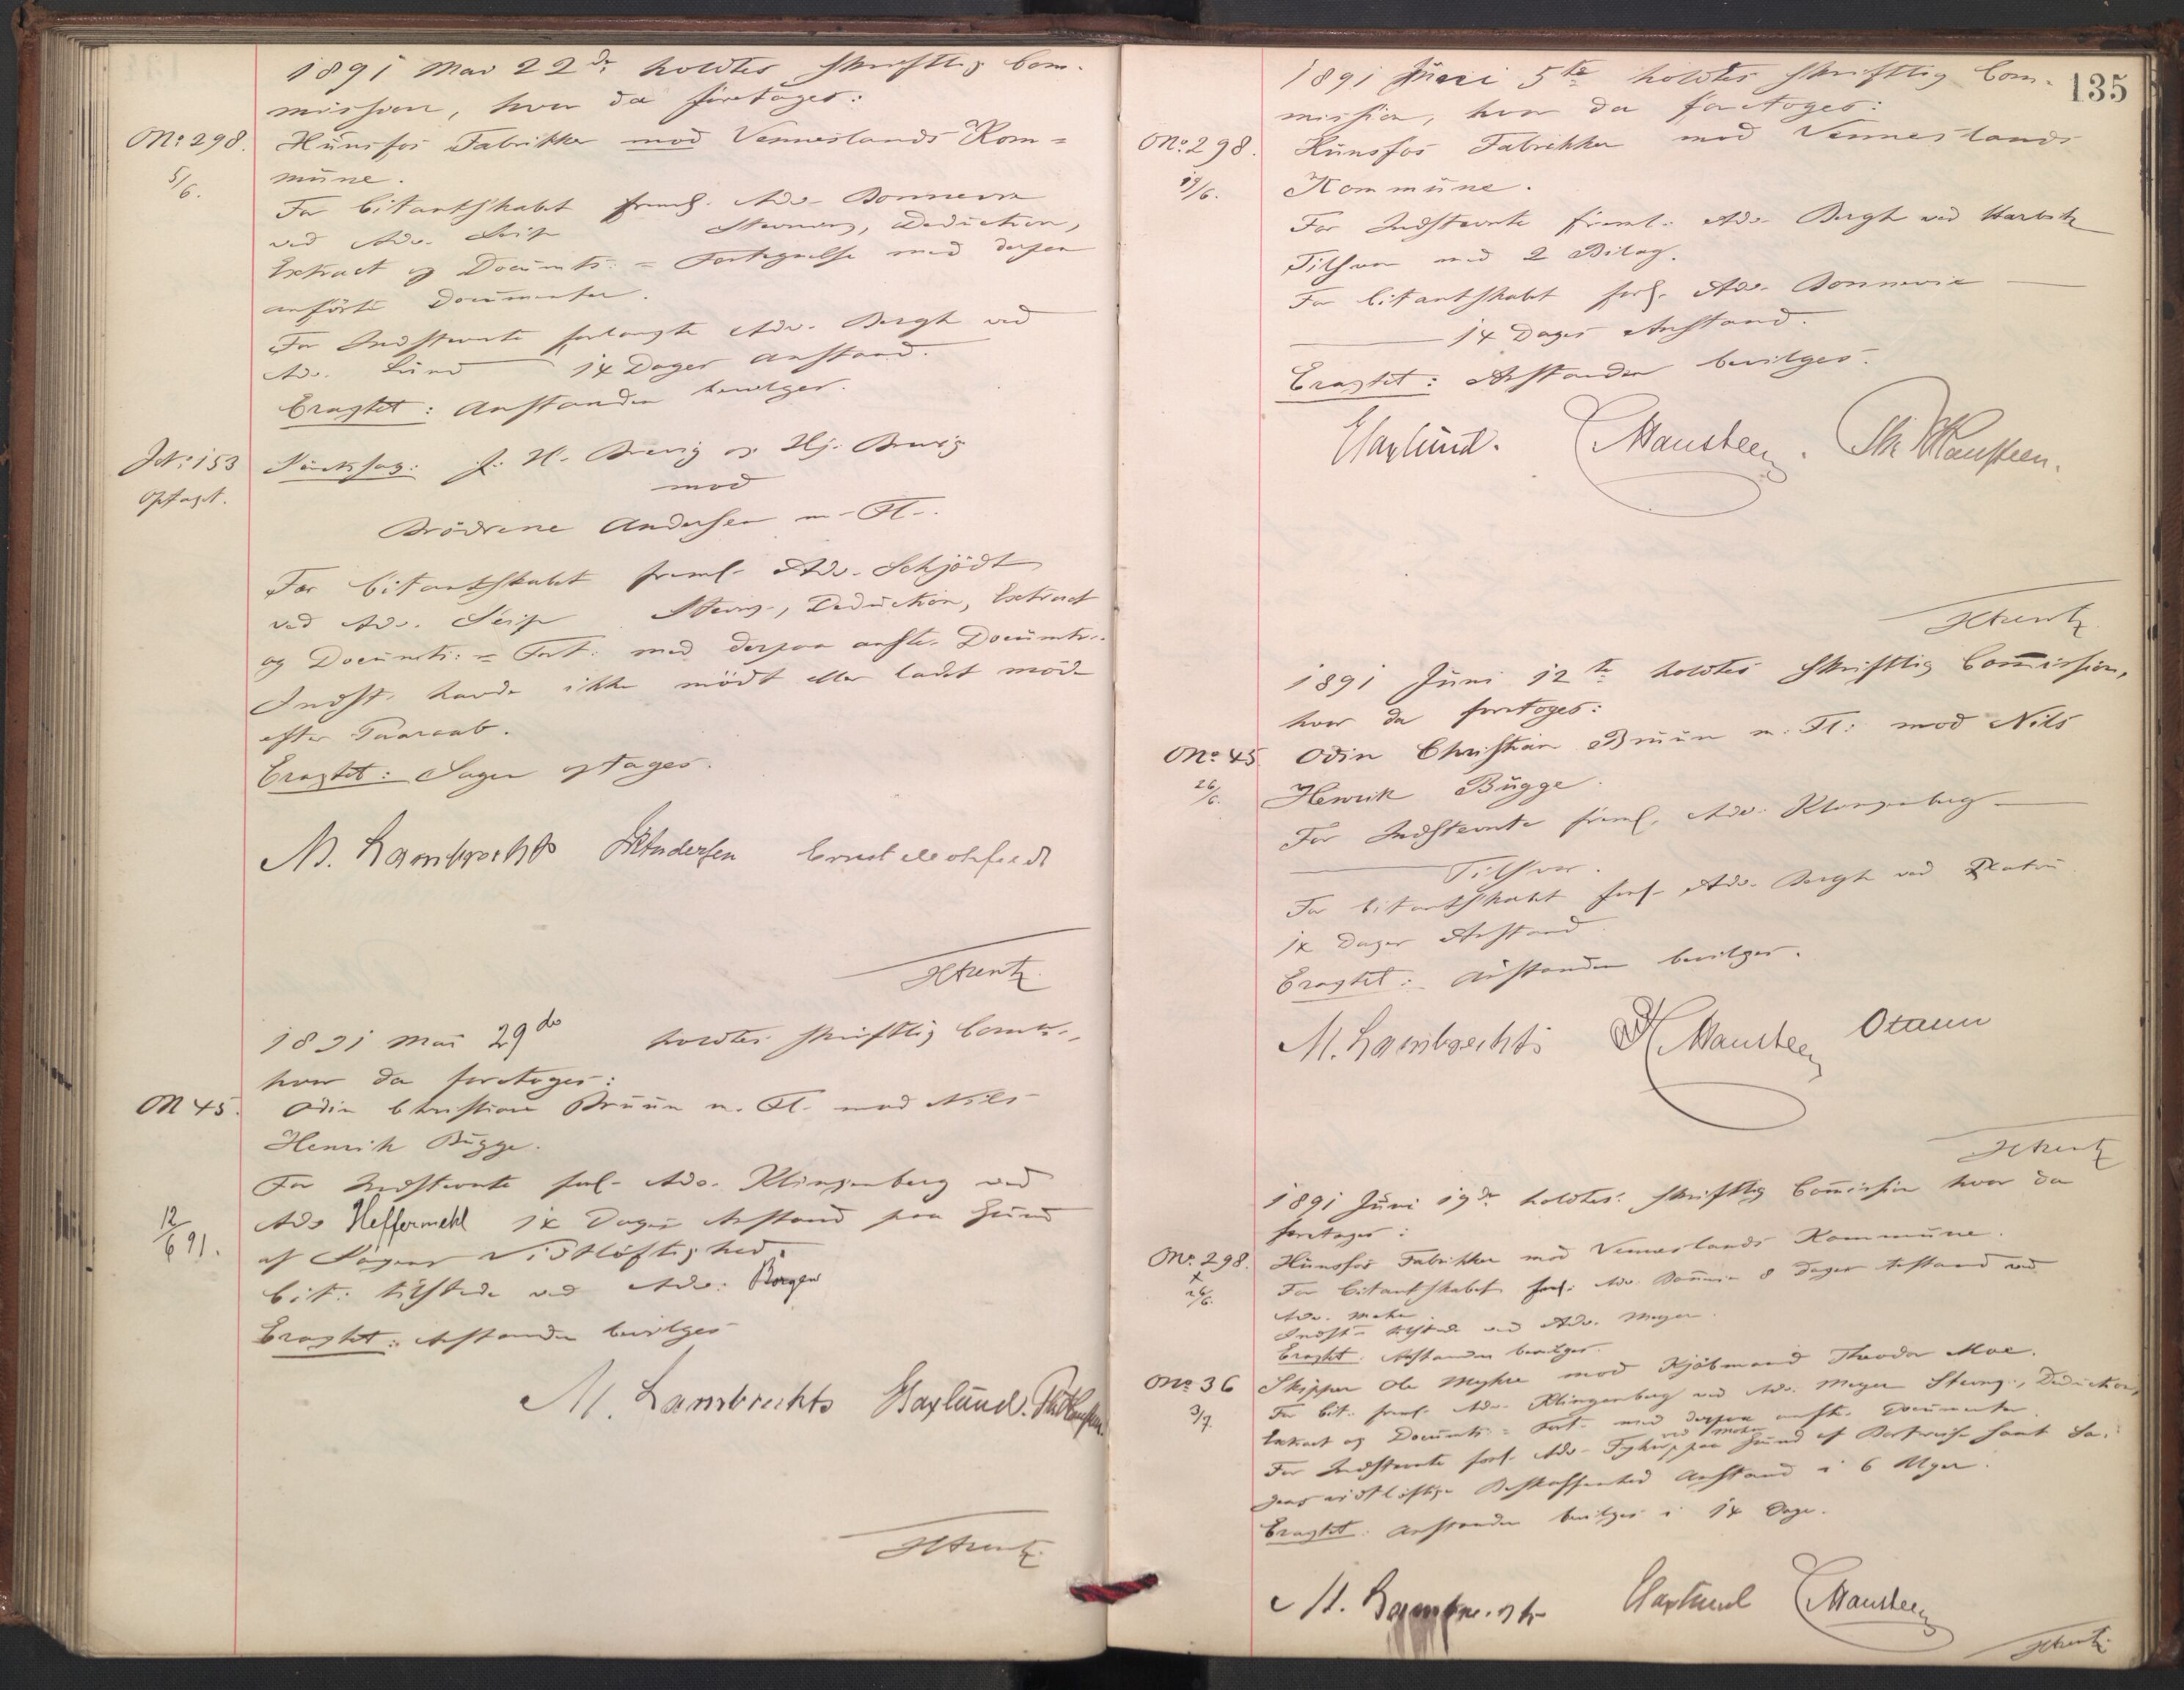 1891 Mai 22de holdtes skriftlig Com-
mission, hvor da foretoges:
No: 298. Hunsfos Fabrikker mod Venneslands Kom=
5/6. mune.
For Citantskabet freml. Adv. Bonnevie
ved Adv. Seip Stevning, Deduction,
Extract og Documts.= Fortegnelse med derpaa
anførte Documenter.
For Indstevnte forlangte Adv. Bergh ved
Adv. Lund 14 Dages Anstand.
Eragtet: Anstanden bevilges.
No: 153 H. Brevig og Hj. Brevig
Optaget. mod
Brødrene Andersen m. Fl.
For Citantskabet freml. Adv. Schjødt
ved Adv. Seip Stevng., Deduction, Extract
og Documts:= Fort: med derpaa anfte. Documtr.
Indst. havde ikke mødt eller ladet møde
efter Paaraab.
Eragtet: Sagen optages.
M. Lambrechts Andersen Ernst Mohrfeldt
1891 Mai 29de holdtes skriftlig Comm.,
hvor da foretoges:
No 45. Odin Christian Bruun m. Fl. mod Nils
Henrik Bugge.
For Indstevnte forl. Adv. Klingenberg ved
12/6 91. Adv Heffermehl 14 Dages Anstand paa Grund
af Sagens Vidtløftighed.
Cit: tilstede ved Adv: Borgen
Eragtet: Anstanden bevilges
M. Lambrechts Haxlund. Th Hansteen.
135
1891 Juni 5te holdtes skriftlig Com-
mission, hvor da foretoges:
No: 298. Hunsfos Fabrikker mod Venneslands
19/6. Kommune.
For Indstevnte freml. Adv. Bergh ved Harbitz
Tilsvar med 2 Bilag.
For Citantskabet forl. Adv. Bonnevie
14 Dages Anstand.
Eragtet: Anstanden bevilges.
Haxlund. Hansteen. Th. Hansteen.
1891 Juni 12te holdtes skriftlig Commission,
hvor da foretoges:
No: 45 Odin Christian Bruun m. Fl: mod Nils
26/6. Henrik Bugge.
For Indstevnte freml. Adv. Klingenberg
Tilsvar.
For Citantskabet forl. Adv. Bergh ved Platou
14 Dages Anstand.
Eragtet: Anstanden bevilges.
M. Lambrechts Hansteen
1891 Juni 19de holdtes skriftlig Commission hvor da
foretoges:
No. 298. Hunsfos Fabrikker mod Venneslands Kommune.
26/6. For Citantskabet forl: Adv. Bonnevie 8 Dages Anstand ved
Adv.
Indst. tilstede ved Adv. Meyer.
Eragtet: Anstanden bevilges.
No: 36 Skipper Ole Myhre mod Kjøbmand Theodor Moe.
3/7. For Cit. freml. Adv. Klingenberg ved Adv. Meyer Stevng., Deduction,
Extract og Documts.= Fort. med derpaa anfte. Documenter.
For Indstevnte forl. Adv. paa Grund af Bortreise samt Sa-
gens vidtløftige Beskaffenhed Anstand i 6 Uger.
Eragtet: Anstanden bevilges i 14 Dage.
M. Lambrechts Haxlund Hansteen